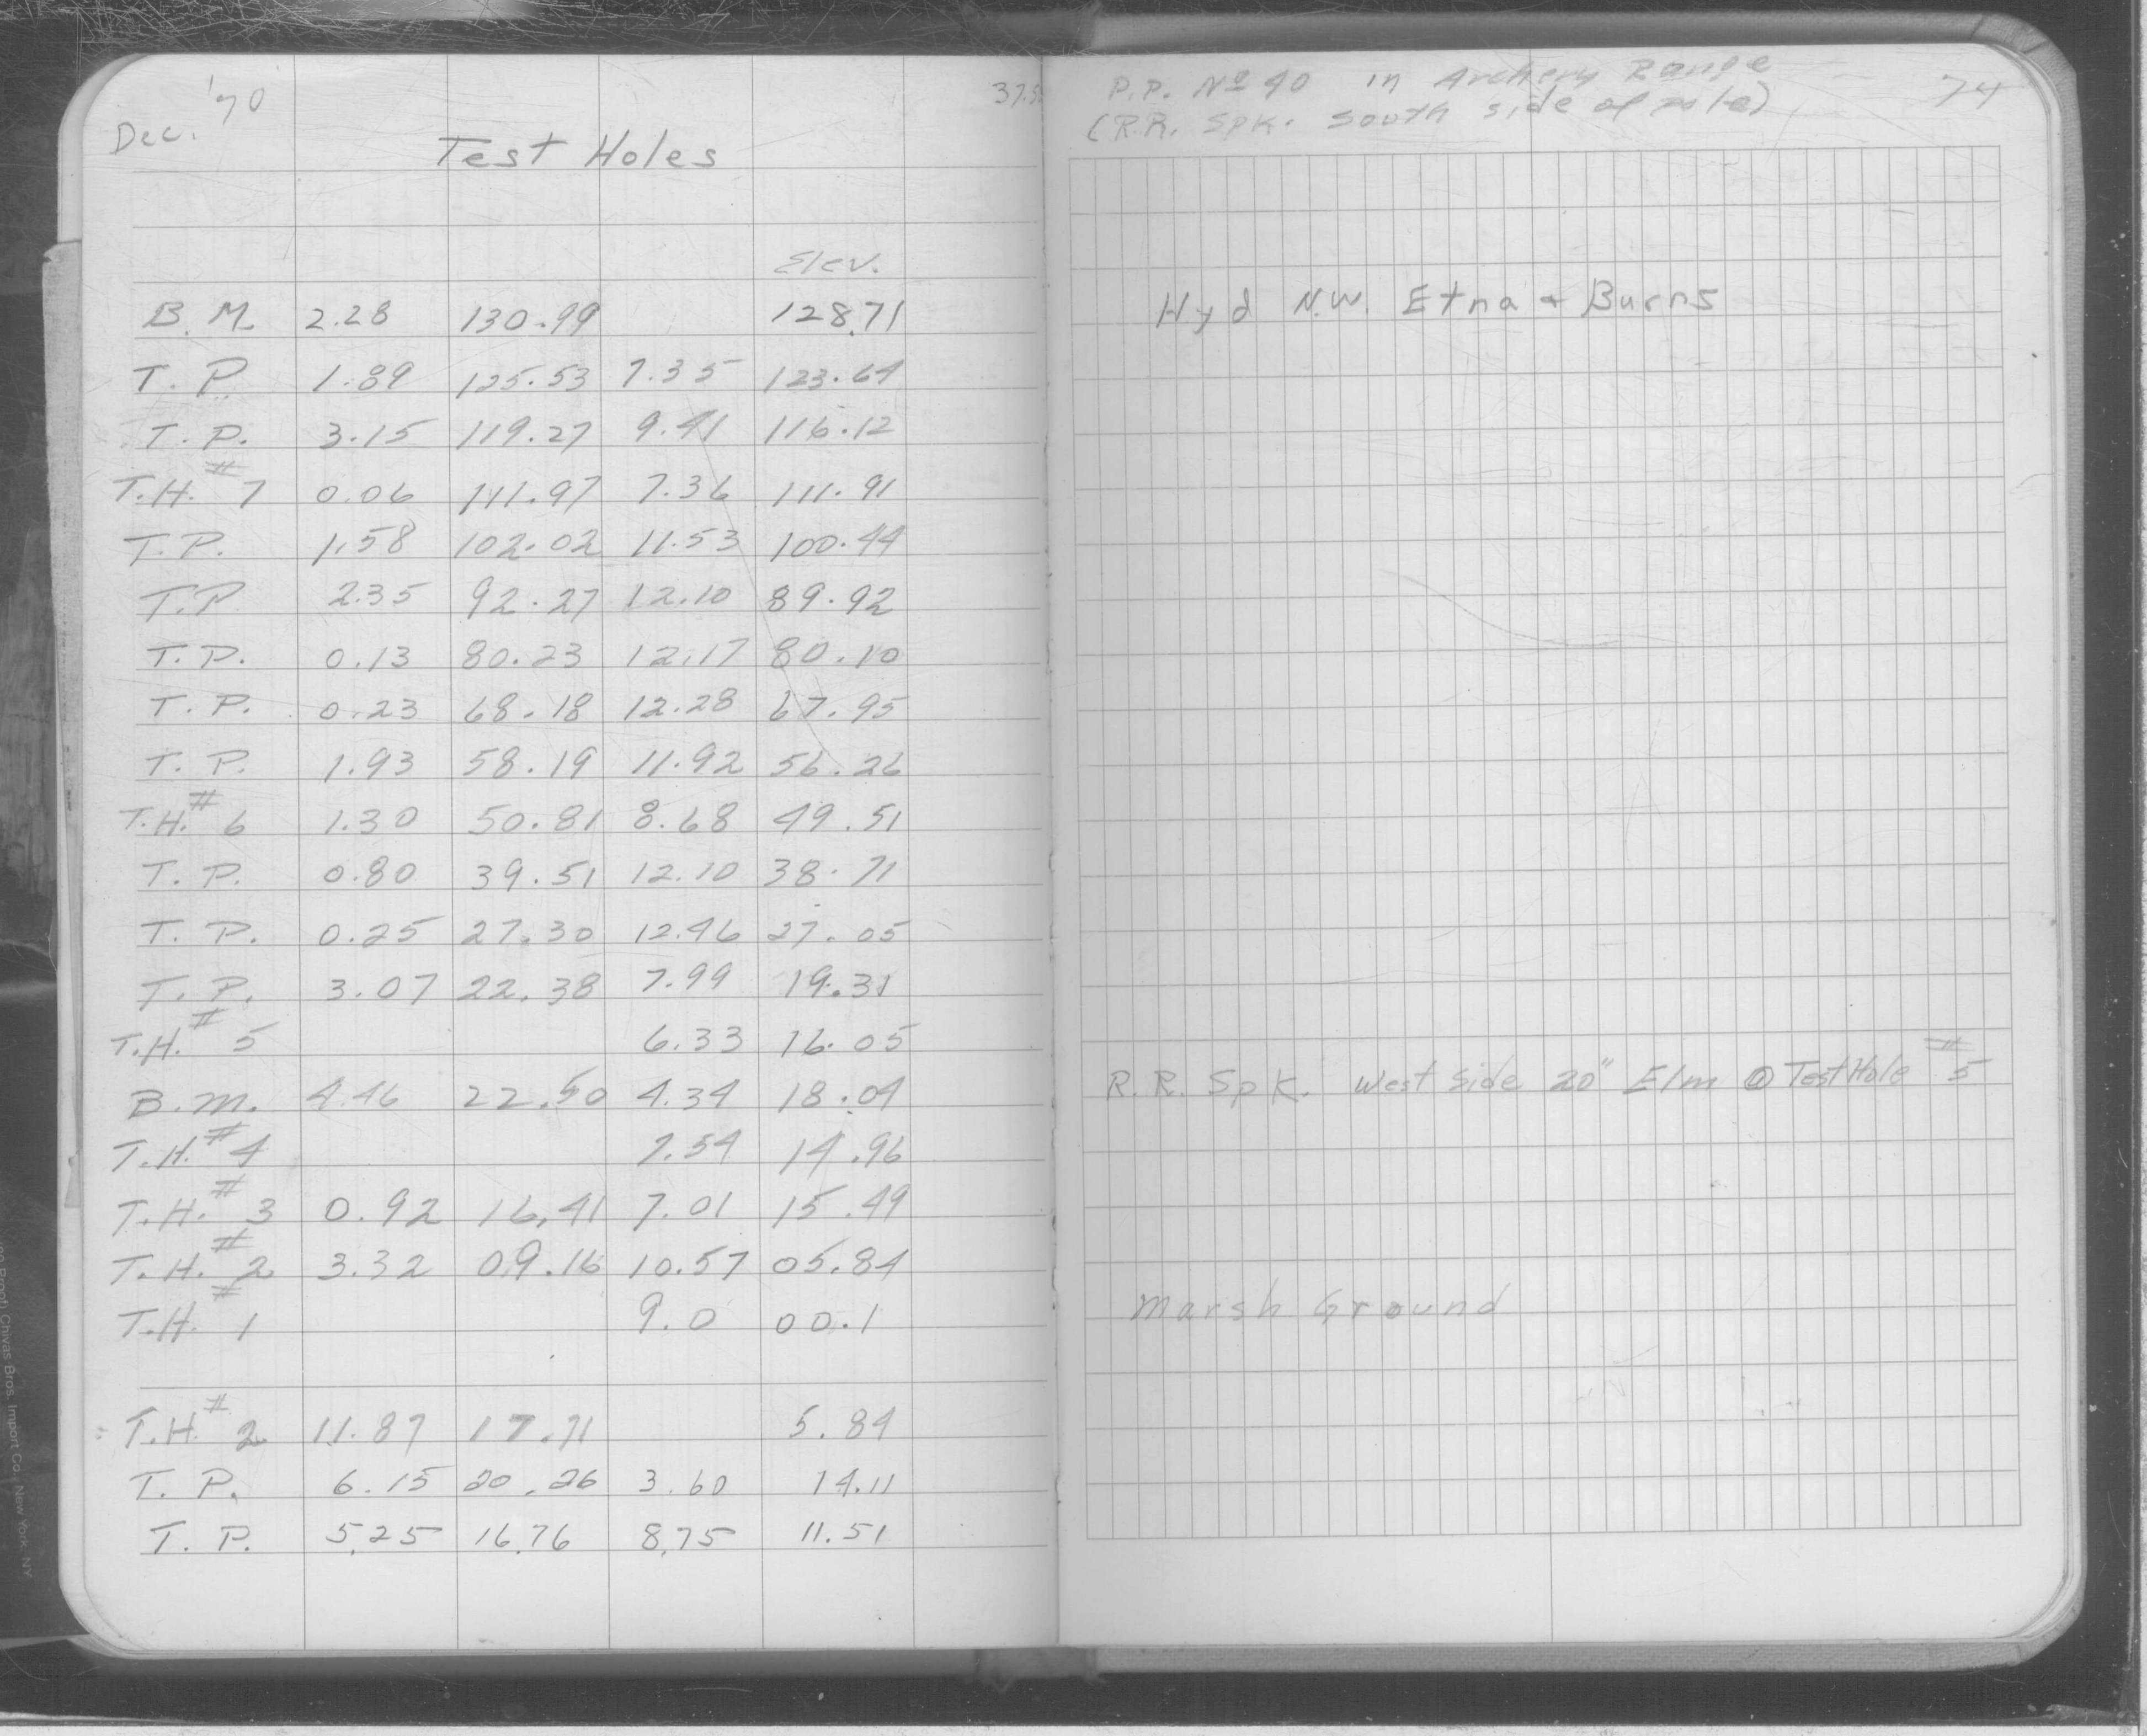 Dec. '70
Test Holes
Elev.
B.M. 2.28 130.99 128.71
T.P. 1.89 125.53 7.35 123.64
T.P. 3.15 119.27 9.41 116.12
T.H. #7 0.06 111.97 7.36 111.91
T.P. 1.58 102.02 11.53 100.44
T.P 2.35 92.27 12.10 89.92
T.P. 0.13 80.23 12.17 80.10
T.P. 0.23 68.18 12.28 67.95
T.P. 1.93 58.19 11.92 56.26
T.H. #6 1.30 50.81 8.68 49.51
T.P. 0.80 39.51 12.10 38.71
T.P. 0.25 27.30 12.46 27.05
T.P. 3.07 22.38 7.99 19.31
T.H. #5 6.33 16.05
B.M. 4.46 22.50 4.34 18.04
T.H. #4 7.54 14.96
T.H. #3 0.92 16.41 7.01 15.49
T.H. #2 3.32 09.16 10.57 05.84
T.H. #1 9.0 00.1
T.H. #2 11.87 17.71 5.84
T.P. 6.15 20.26 3.60 14.11
T.P. 5.25 16.76 8.75 11.51
P.P. Nº 40 in Archery Range 74
(R.R. Spk. South side of pole)
Hyd N.W. Etna + Burns
R.R. Spk. West Side 20" Elm @ Test Hole #5
Marsh Ground